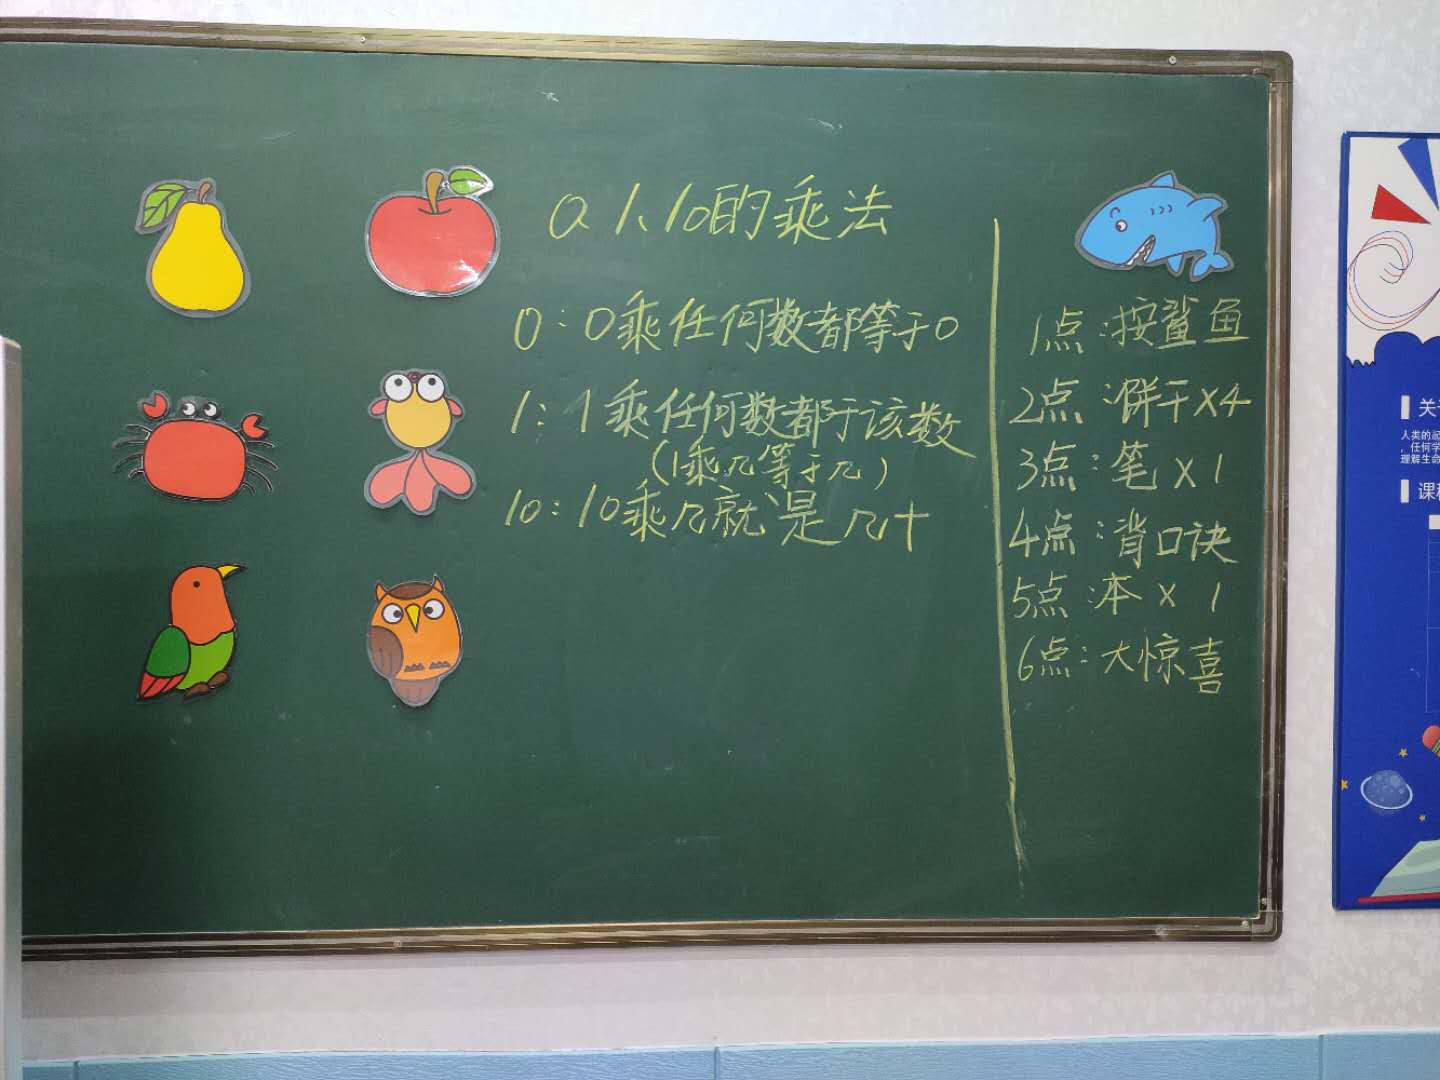 0、1、10的乘法
0：0乘任何数都等于0
1：1乘任何数都于该数
(1乘几等于几)
10：10乘几就是几十
1点：按鲨鱼
2点：饼干x4
3点：笔x1
4点：背口诀
5点：本x1
6点：大惊喜
人类的起
，任何学
理解生命